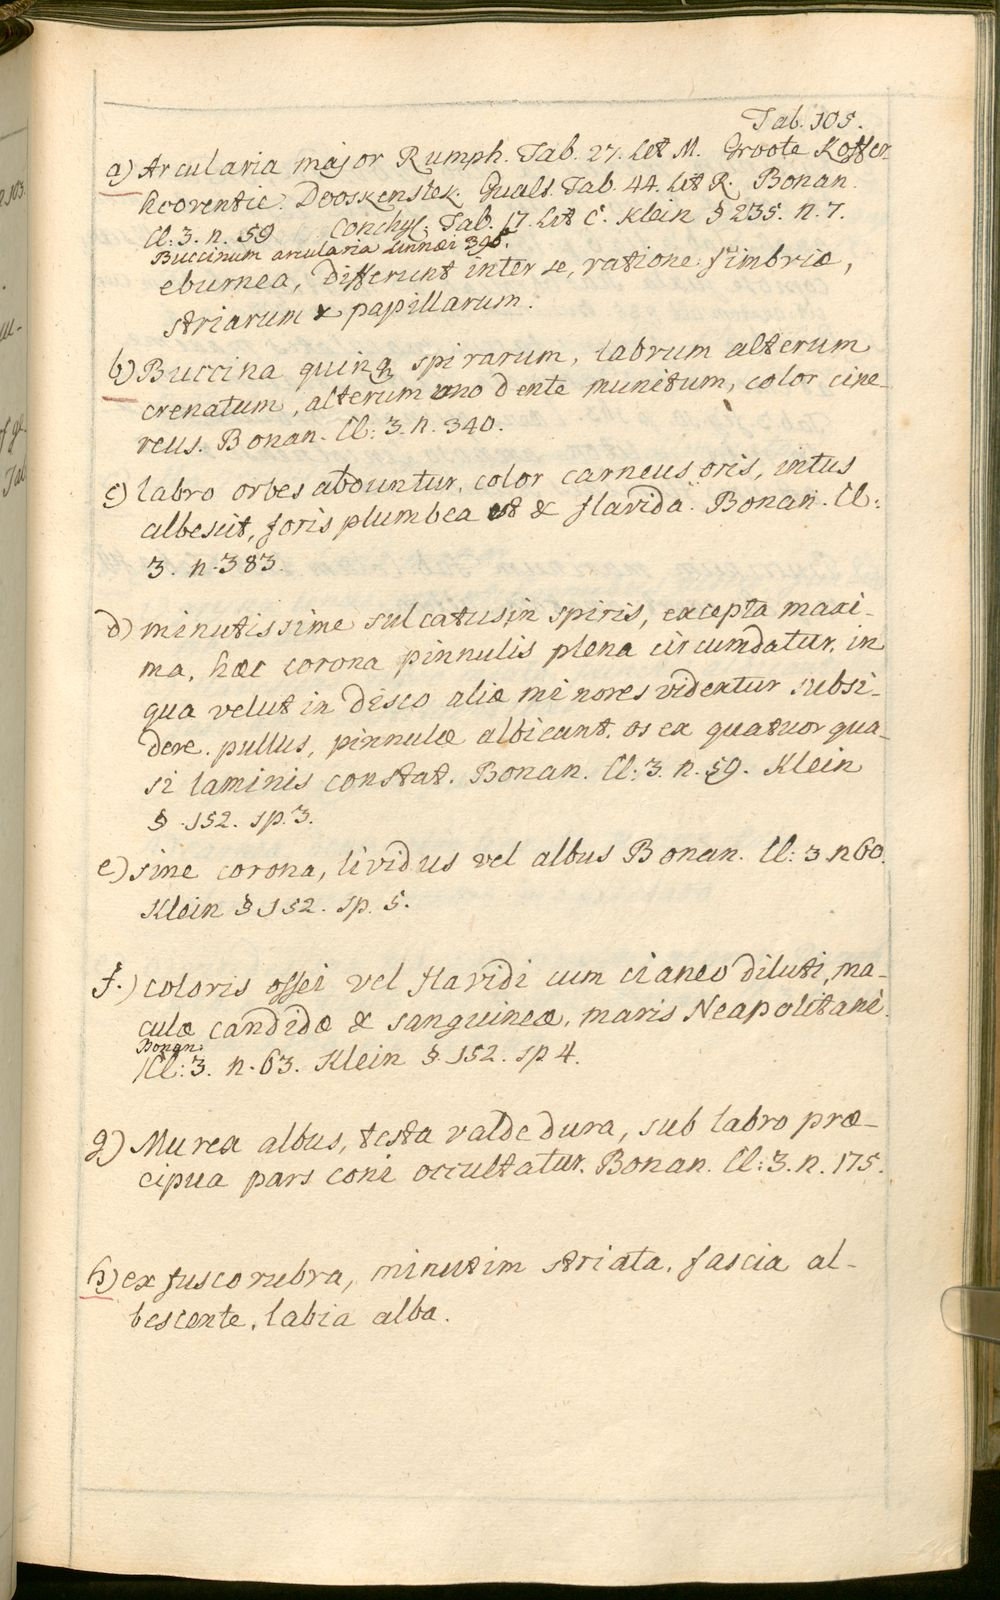 Tab. 105.
a) Arcularia major Rumph. Tab. 27. Let M. Groote Koffer
hoorentie. Dooskenslek. Gualt. Tab. 44. Let R. Bonan.
Cl: 3. n. 59 Conchyl: Tab. 17. Let C. Klein § 235. n. 7.
Buccinum arcularia Linnæi 395.
eburnea, differunt inter se, ratione fimbriæ,
striarum & papillarum.
b) Buccina quinq spirarum, labrum alterum
crenatum, alterum uno dente munitum, color cine-
reus. Bonan. Cl: 3. n. 340.
c) labro orbes abduntur, color carneus oris, intus
albescit, foris plumbea est & flavida. Bonan. Cl:
3. n. 383.
d) minutissime sulcatus in spiris, excepta maxi-
ma, hæc corona pinnulis plena circumdatur, in
qua velut in disco aliæ minores videntur subsi-
dere. pullus, pinnulæ albicant. os ex quatuor qua-
si laminis constat. Bonan. Cl: 3. n. 59. Klein
§. 152. sp. 3.
e) sine corona, lividus vel albus Bonan. Cl: 3 n 60.
Klein § 152. sp. 5.
f.) coloris ossei vel flavidi cum cianeo diluti, ma-
culæ candidæ & sanguineæ, maris Neapolitani.
Bonan.
Cl: 3. n. 63. Klein §. 152. sp 4.
g) Murex albus, testa valde dura, sub labro præ-
cipua pars coni occultatur. Bonan. Cl: 3. n. 175.
h) ex fusco rubra, minutim striata, fascia al-
bescente, labia alba.